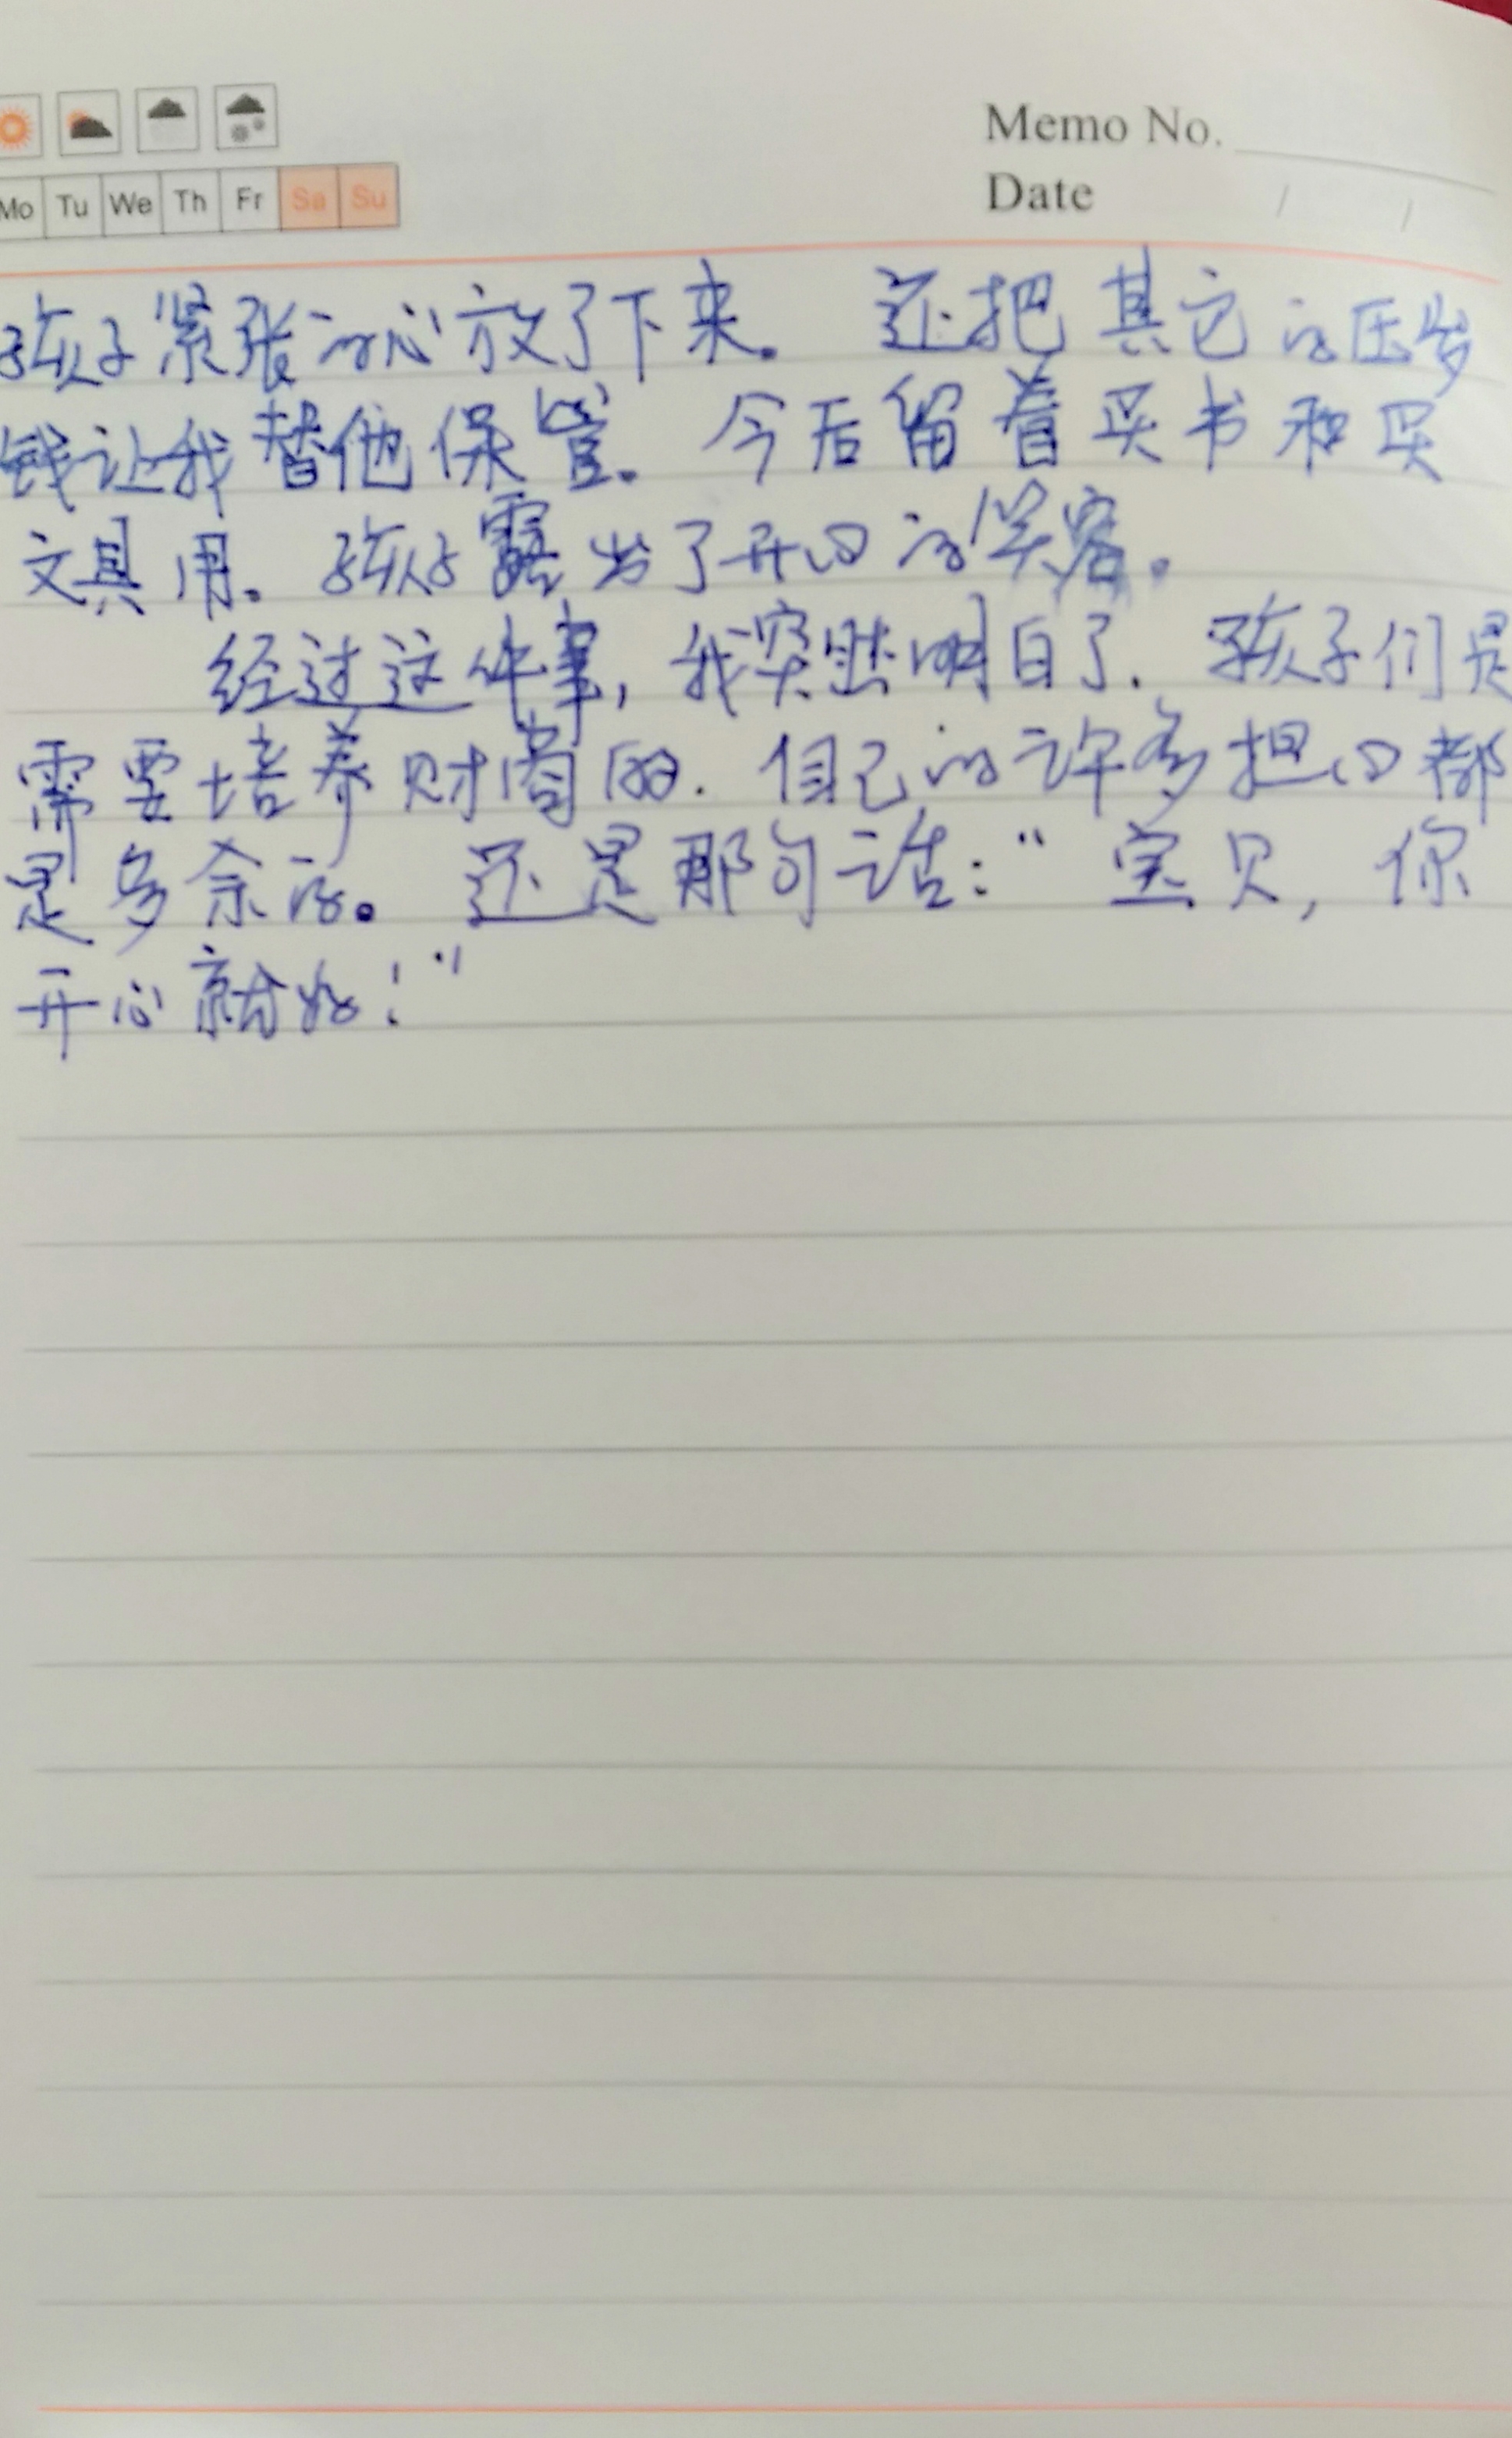 Memo No.
Mo Tu We Th Fr Sa Su
Date / /
孩子紧张的心放了下来。还把其它的压岁
钱让我替他保管。今后留着买书和买
文具用。孩子露出了开心的笑容。
经过这件事,我突然明白了.孩子们是
需要培养财商的.自己的许多担心都
是多余的。还是那句话:“宝贝,你
开心就好!”